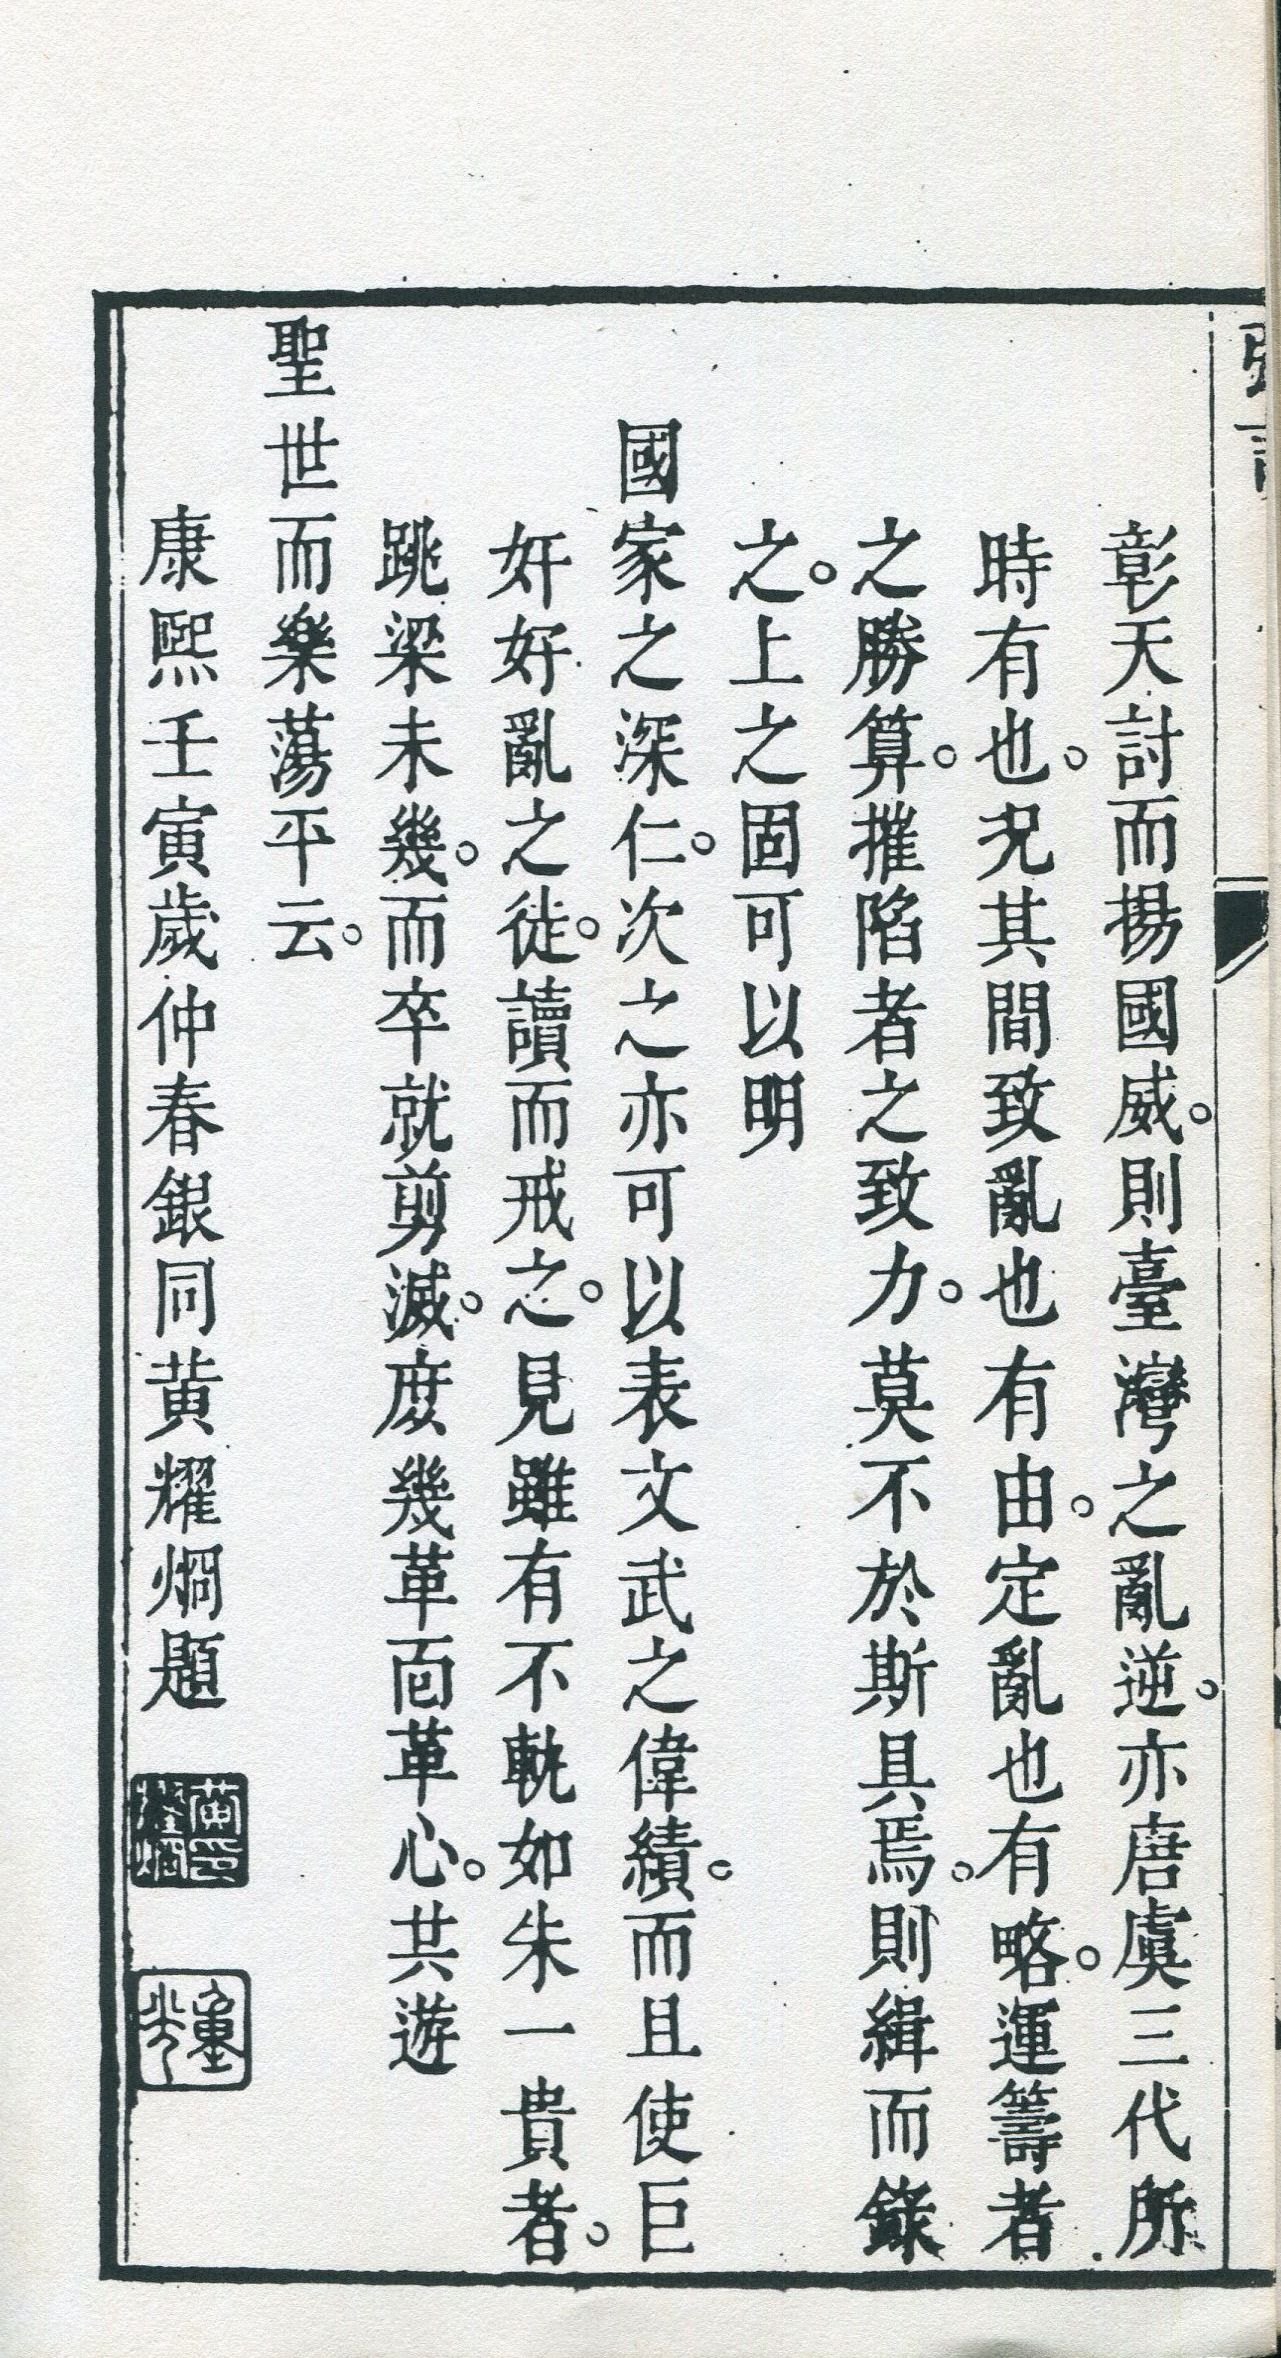 彰天討而揚國威。則臺灣之亂逆。亦唐虞三代所
時有也。況其間致亂也有由。定亂也有略。運籌者
之勝算。摧陷者之致力。莫不於斯具焉。則緝而錄
之。上之固可以明
國家之深仁。次之亦可以表文武之偉績。而且使巨
奸好亂之徒。讀而戒之。見雖有不軌如朱一貴者。
跳梁未幾。而卒就剪滅。庶幾革面革心。共遊
聖世而樂蕩平云。
康熙壬寅歲仲春銀同黃耀炯題